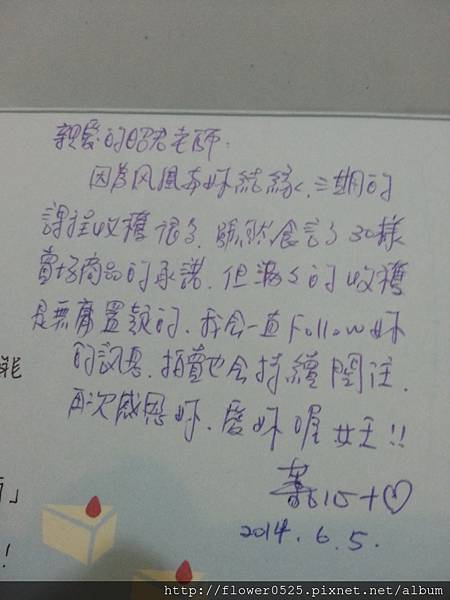 親愛的昭君老師:
因為风凰与妳結緣,三期的
課程收穫很多.雖然食言了30樣
賣場商品的承諾.但滿滿的收穫
是無庸置疑的.我会一直Follow妳
的訊息.拍賣也会持續関注.
再次感恩妳.愛妳喔女王!!
2014.6.5.
能
」
!
http://flower0525.pixnet.net/album